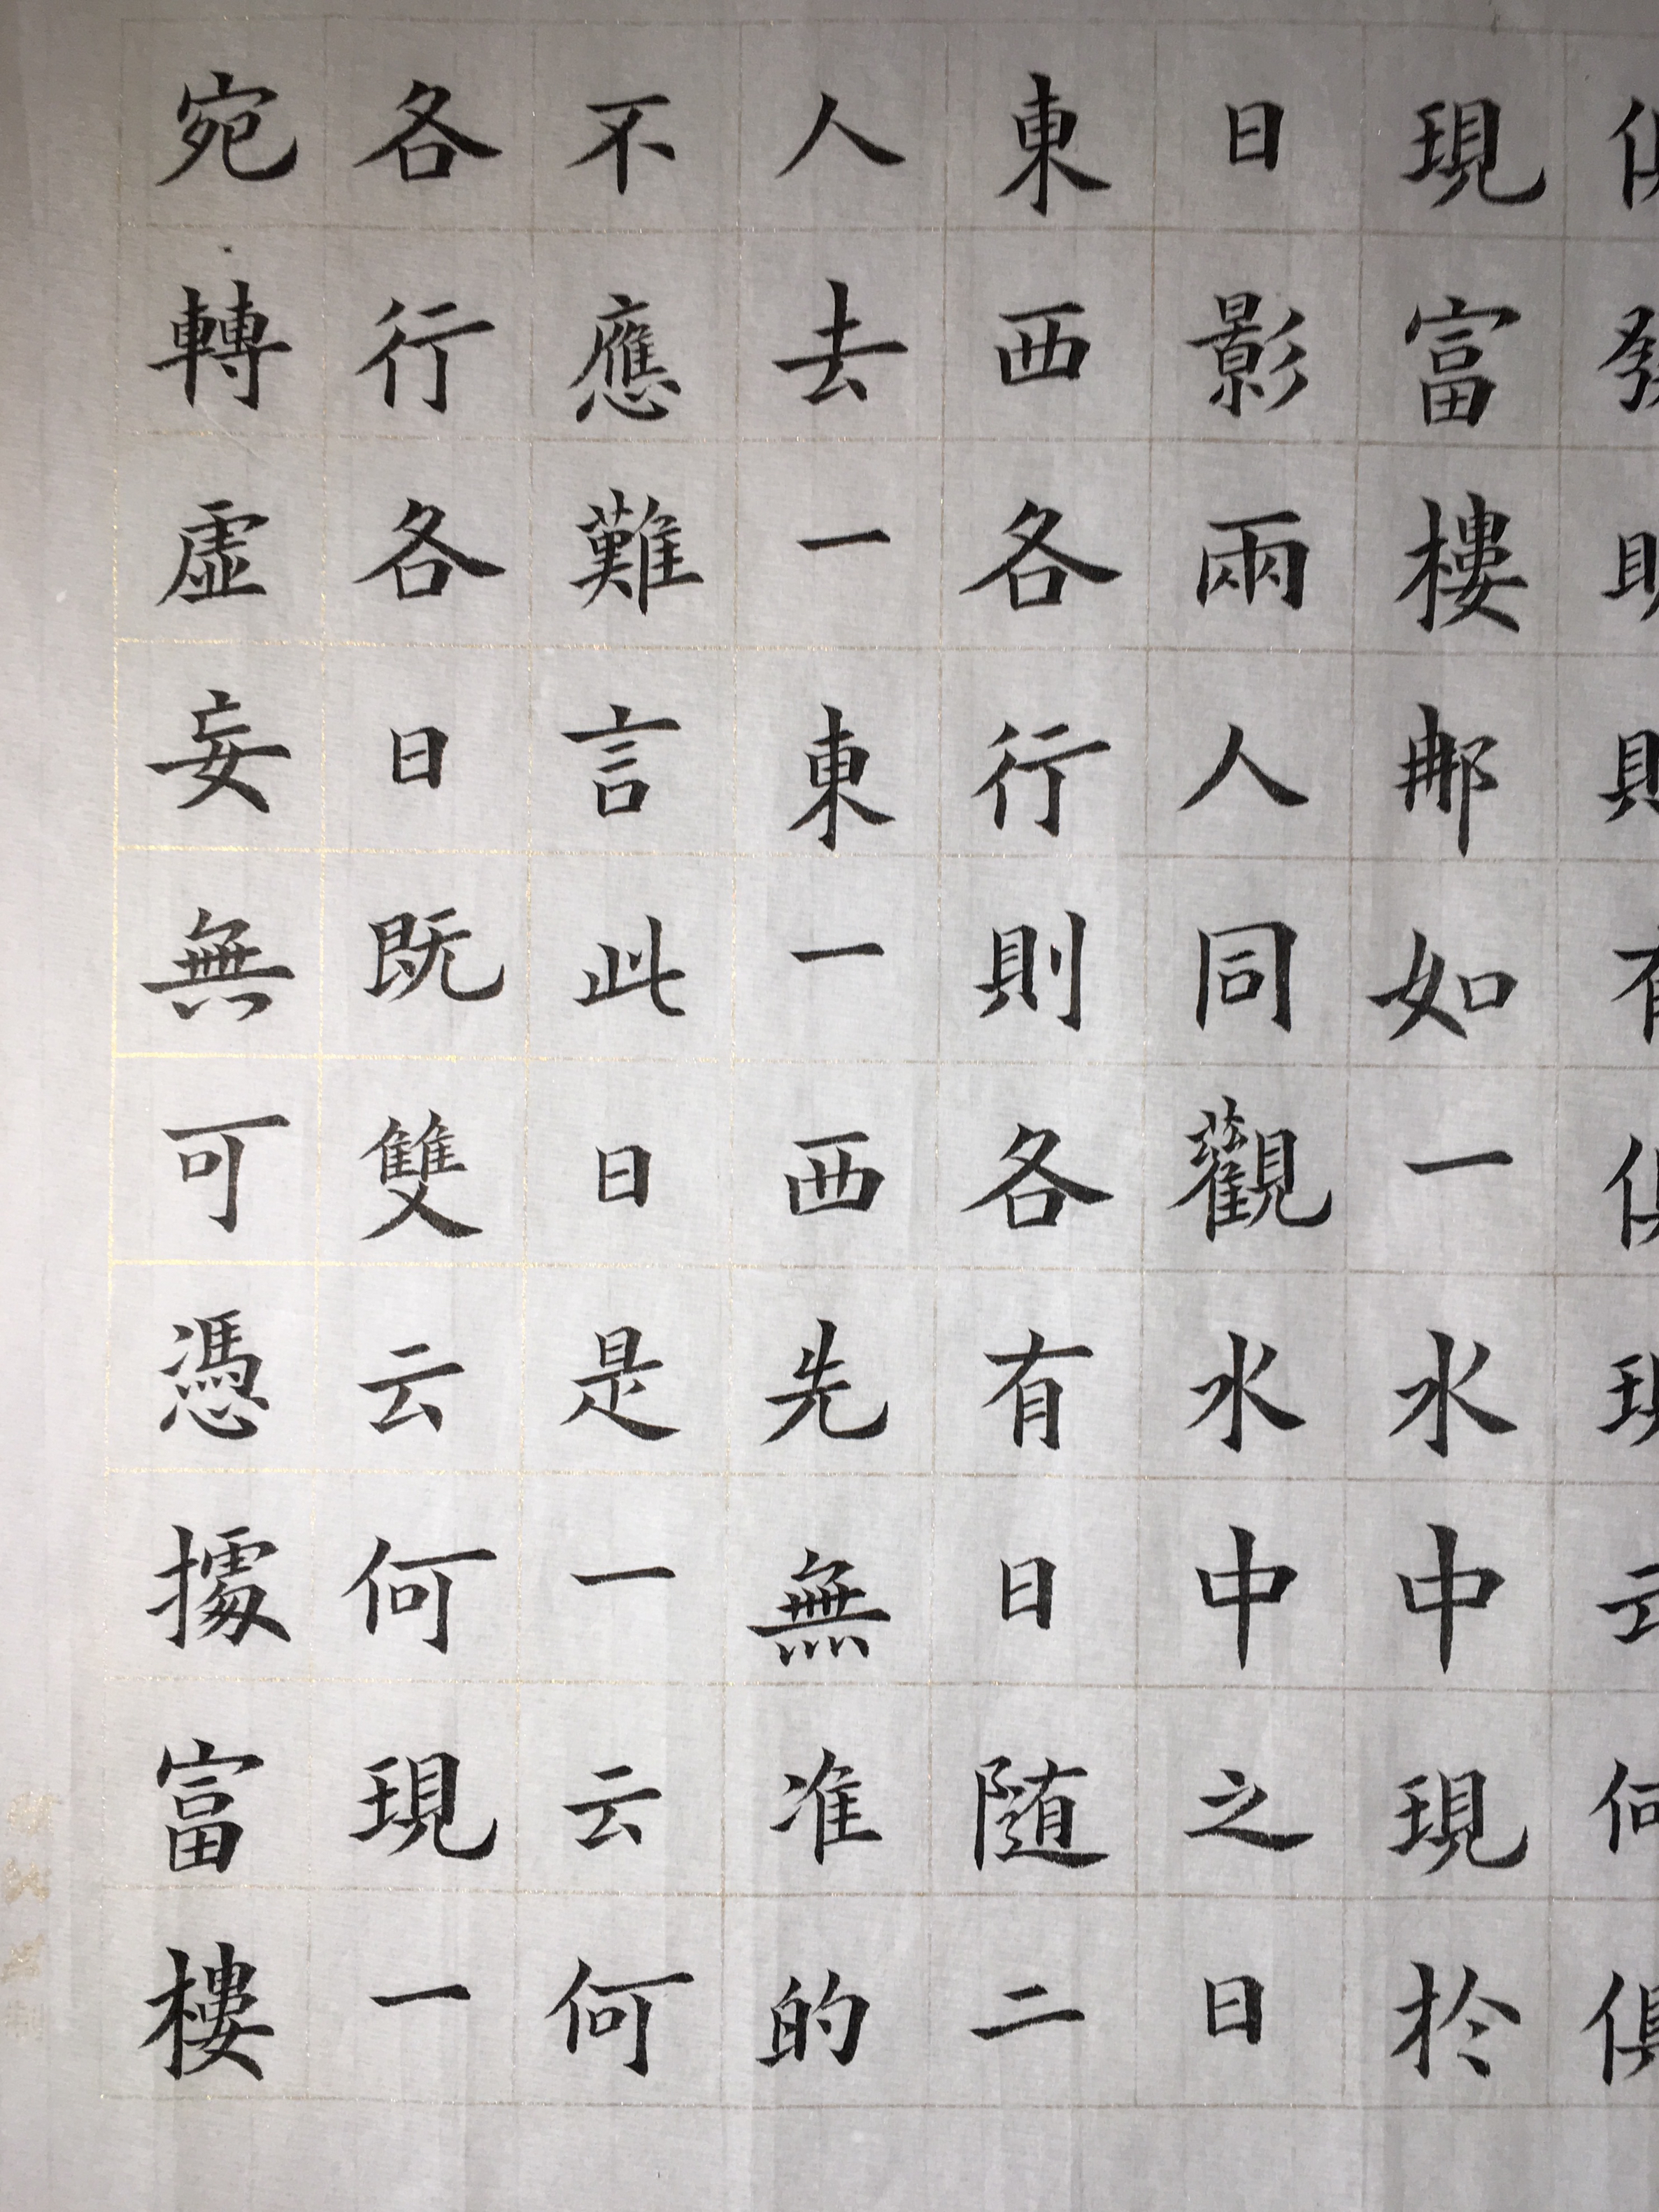 云何俱
現富樓那如一水中現於
日影兩人同觀水中之日
東西各行則各有日随二
人去一東一西先無准的
不應難言此日是一云何
各行各日既雙云何現一
宛轉虛妄無可憑據富樓